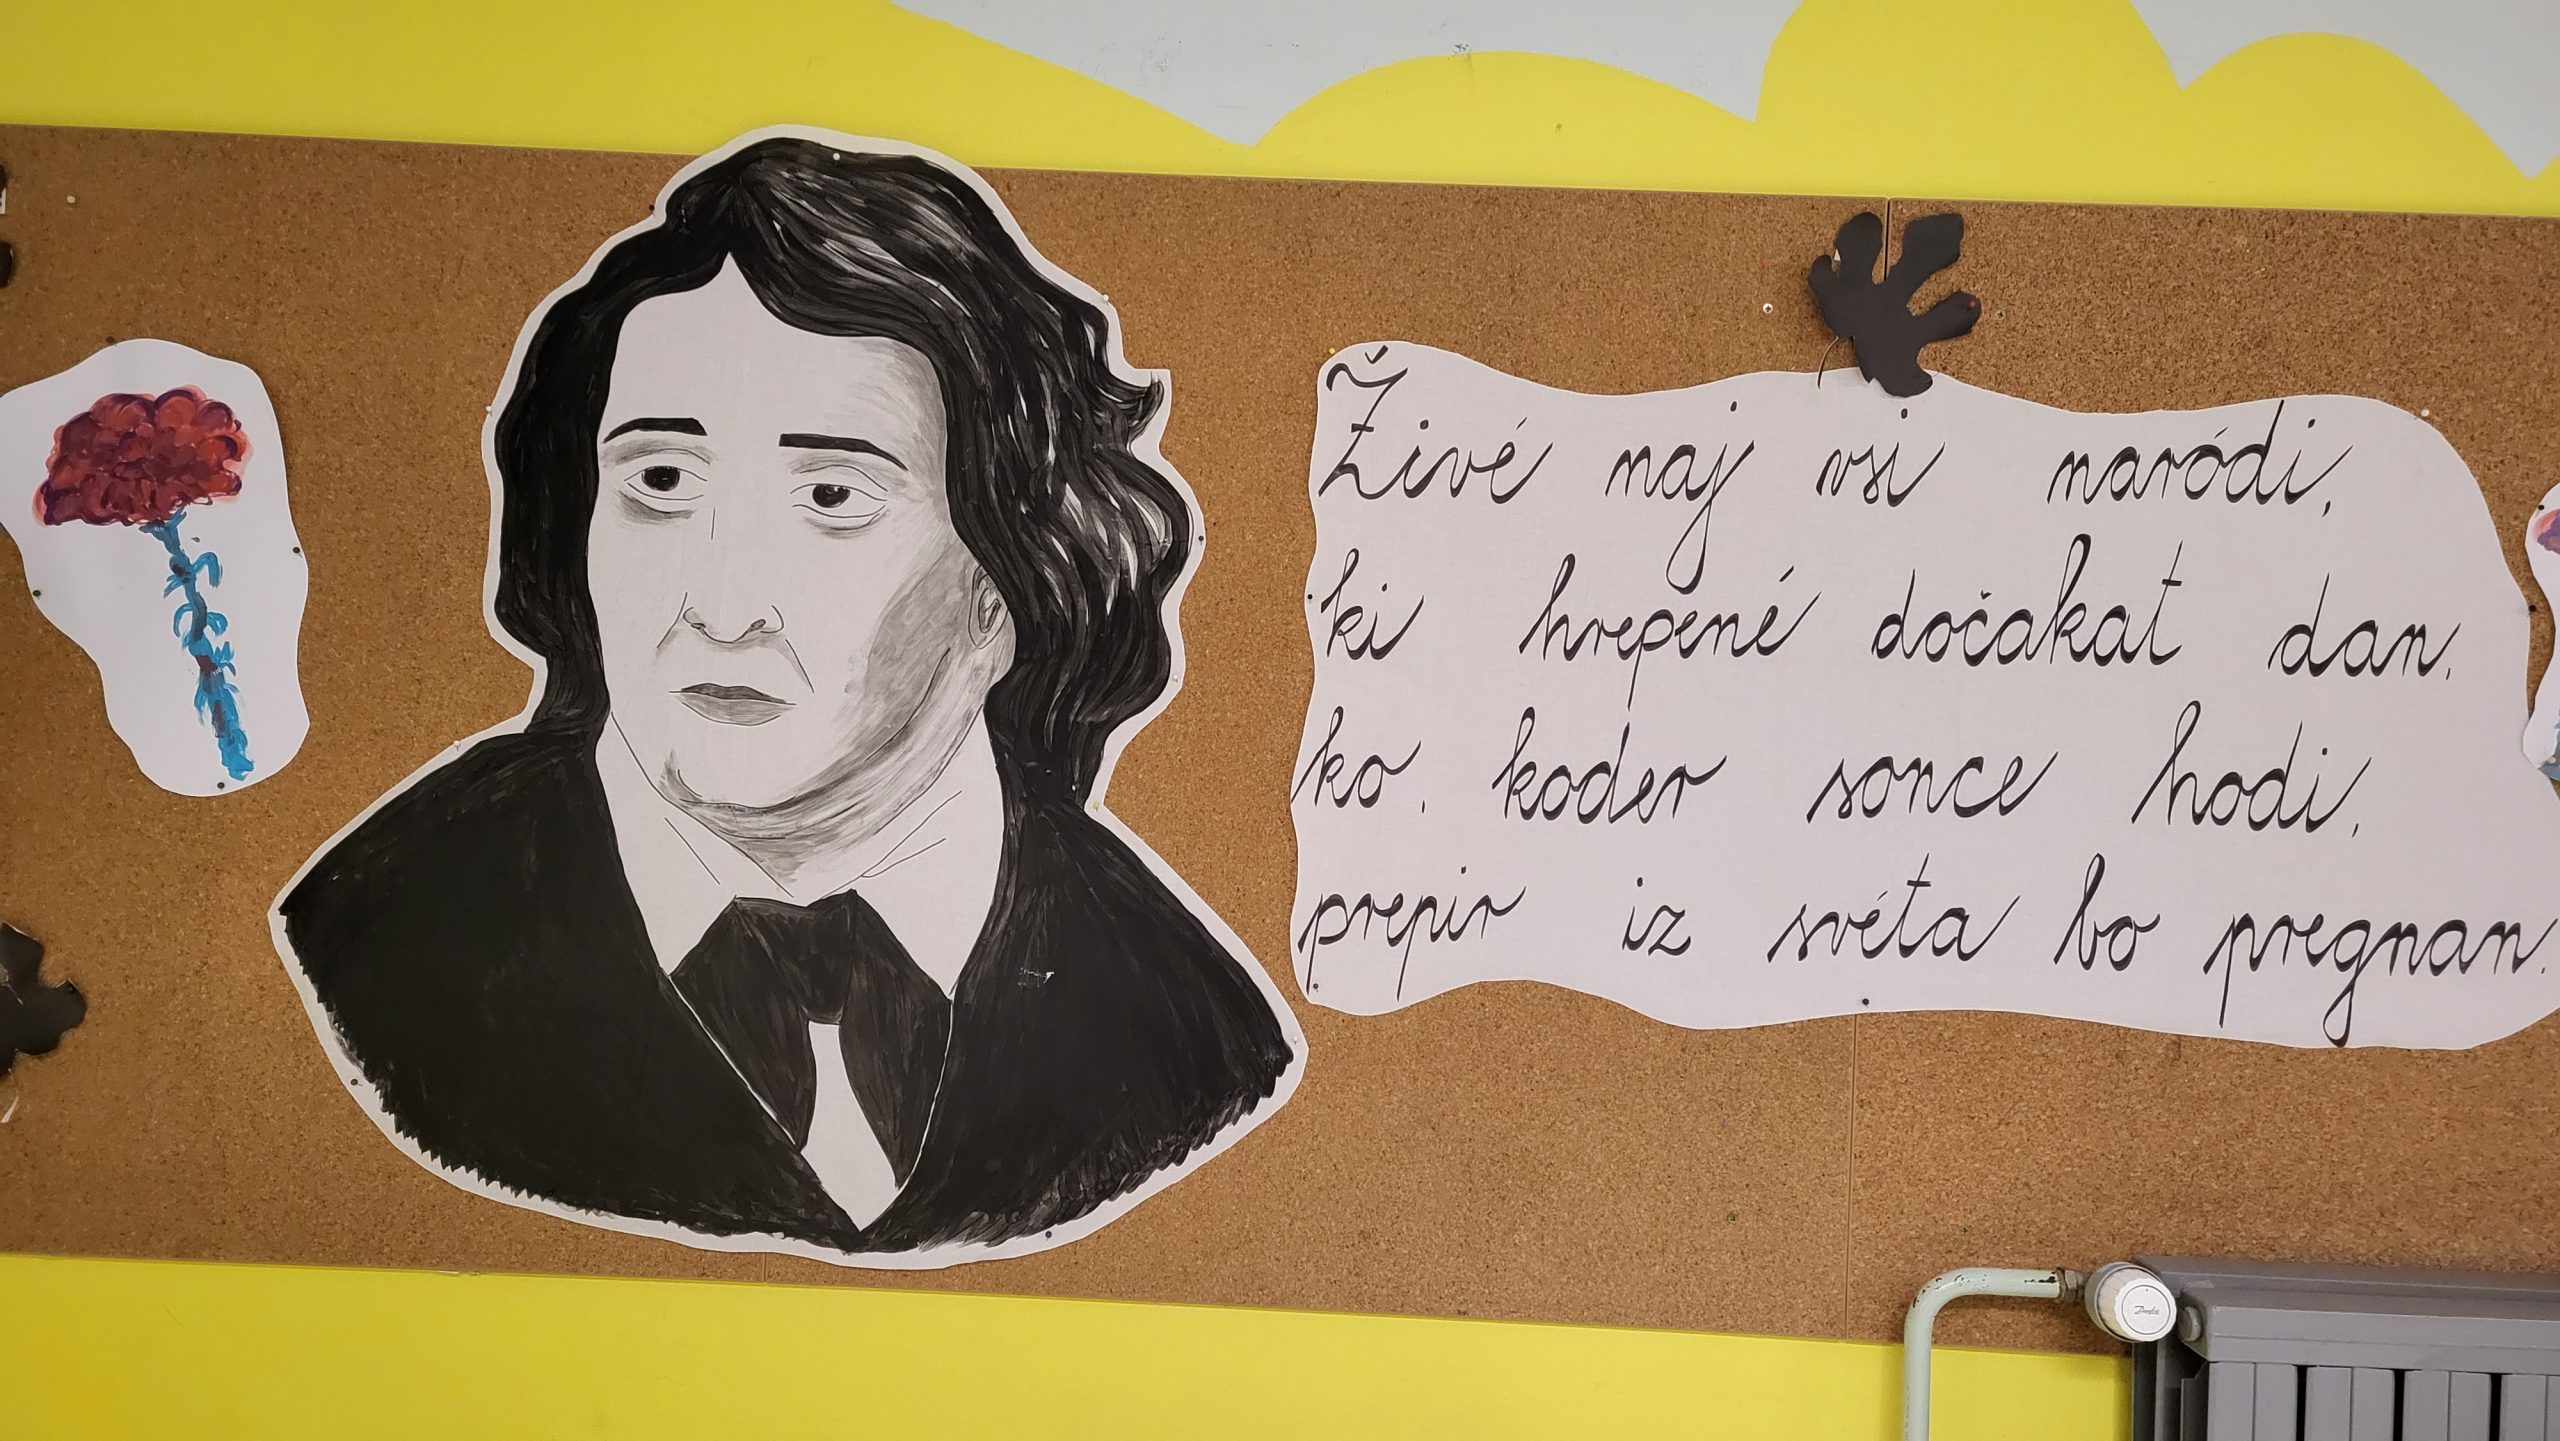 Živé naj vsi naródi,
ki hrepené dočakat dan,
ko, koder sonce hodi,
prepir iz svéta bo pregnan.
Danfoss